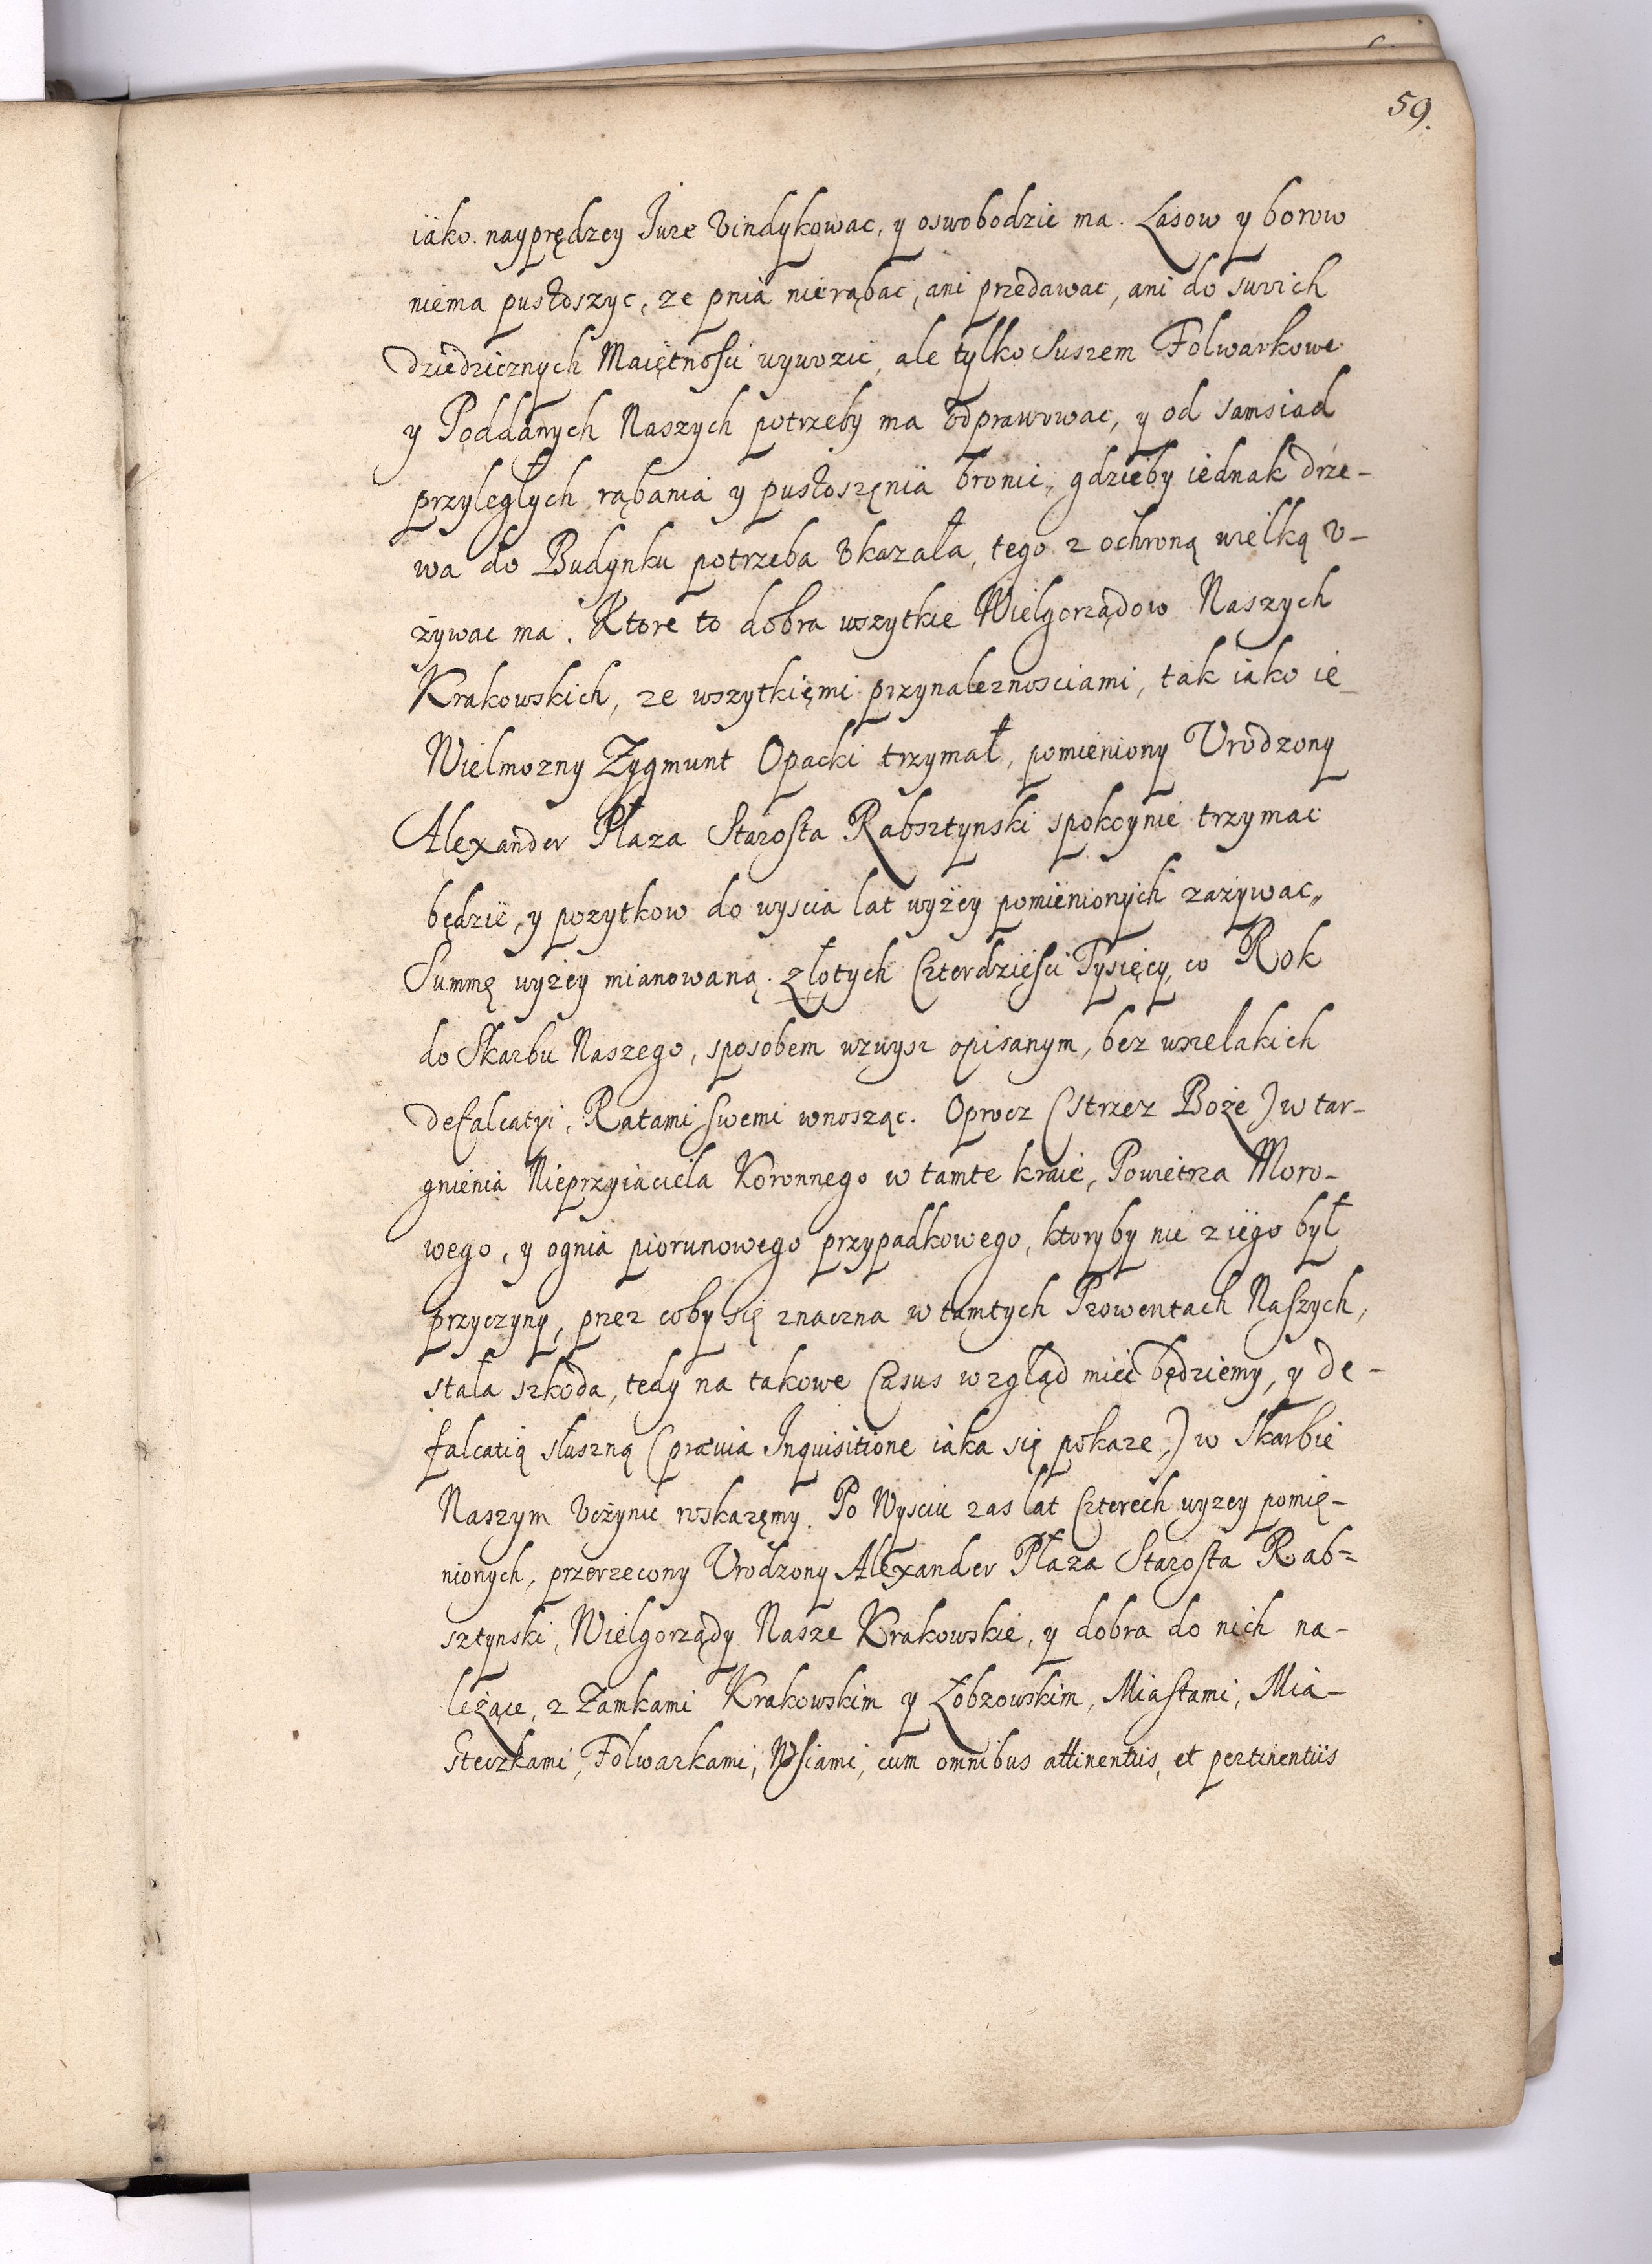 59.
iako nayprędzey Jure vindykowac, y oswobodzic ma. Lasow y borow
niema pustoszyc, ze pnia nierąbac, ani przedawac, ani do swoich
dziedzicznych Maiętnosci wywozic, ale tylko Suszem Folwarkowe
y Poddanych Naszych potrzeby ma odprawowac, y od samsiad
przyległych rąbania y pustoszęnia bronic, gdzieby iednak drze-
wa do Budynku potrzeba vkazała, tego z ochroną wielką v-
żywac ma. Ktore to dobra wszytkie Wielgorządow Naszych
Krakowskich, ze wszytkięmi przynaleznosciami, tak iako ie
Wielmozny Zygmunt Opacki trzymał, pomieniony Vrodzony
Alexander Płaza Starosta Rabsztynski spokoynie trzymac
będzie, y pozytkow do wyscia lat wyżey pomienionych zażywac,,
Summę wyżey mianowaną złotych Czterdziesci Tysięcy, co Rok
do Skarbu Naszego, sposobem wzwysz opisanym, bez wszelakich
defalcatyi, Ratami swemi wnosząc. Oprocz (strzez Boże) wtar-
gnienia Nieprzyiaciela Koronnego w tamte kraie, Powietrza Moro-
wego, y ognia piorunowego przypadkowego, ktoryby nie z iego był
przyczyny, przez coby się znaczna w tamtych Prowentach Naszych,
stała szkoda, tedy na takowe Casus wzgląd miec będziemy, y de-
falcatią słuszną (prævia Inquisitione iaka się pokaze,) w Skarbie
Naszym vczynic rozkazęmy. Po Wysciu zas lat Czterech wyzey pomię-
nionych, przerzeczony Vrodzony Alexander Płaza Starosta Rab=
sztynski, Wielgorządy Nasze Krakowskie, y dobra do nich na-
leżące, z Zamkami Krakowskim y Łobzowskim, Miastami, Mia-
steczkami, Folwarkami, Wsiami, cum omnibus attinentiis, et pertinentiis